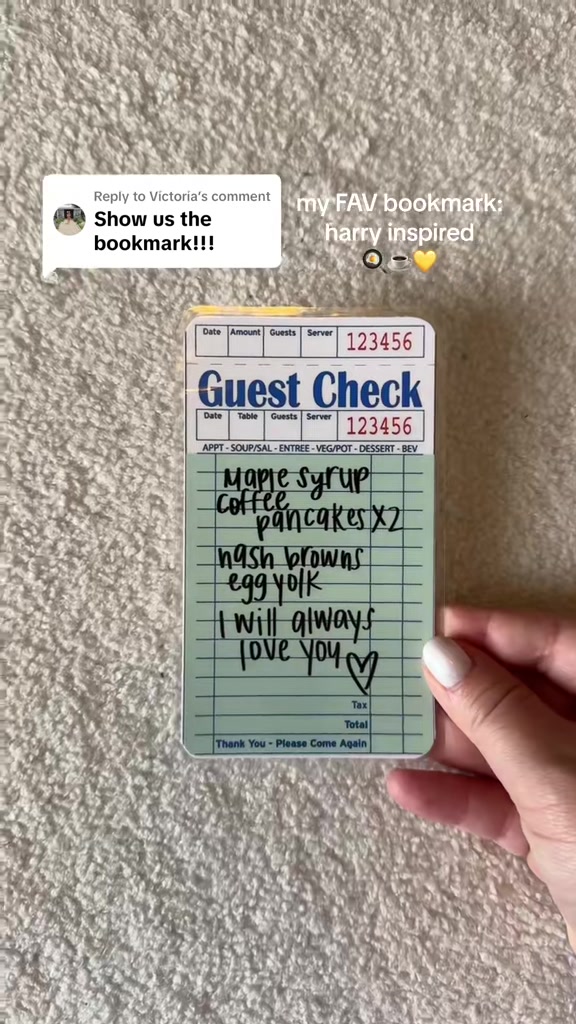 Reply to Victoria's comment
Show us the
bookmark!!!
my FAV bookmark:
harry inspired
🍳☕💛
Date Amount Guests Server 123456
Guest Check
Date Table Guests Server 123456
APPT - SOUP/SAL - ENTREE - VEG/POT - DESSERT - BEV
Maple syrup
coffee
pancakes X2
hash browns
egg yolk
I will always
love you ♡
Tax
Total
Thank You - Please Come Again